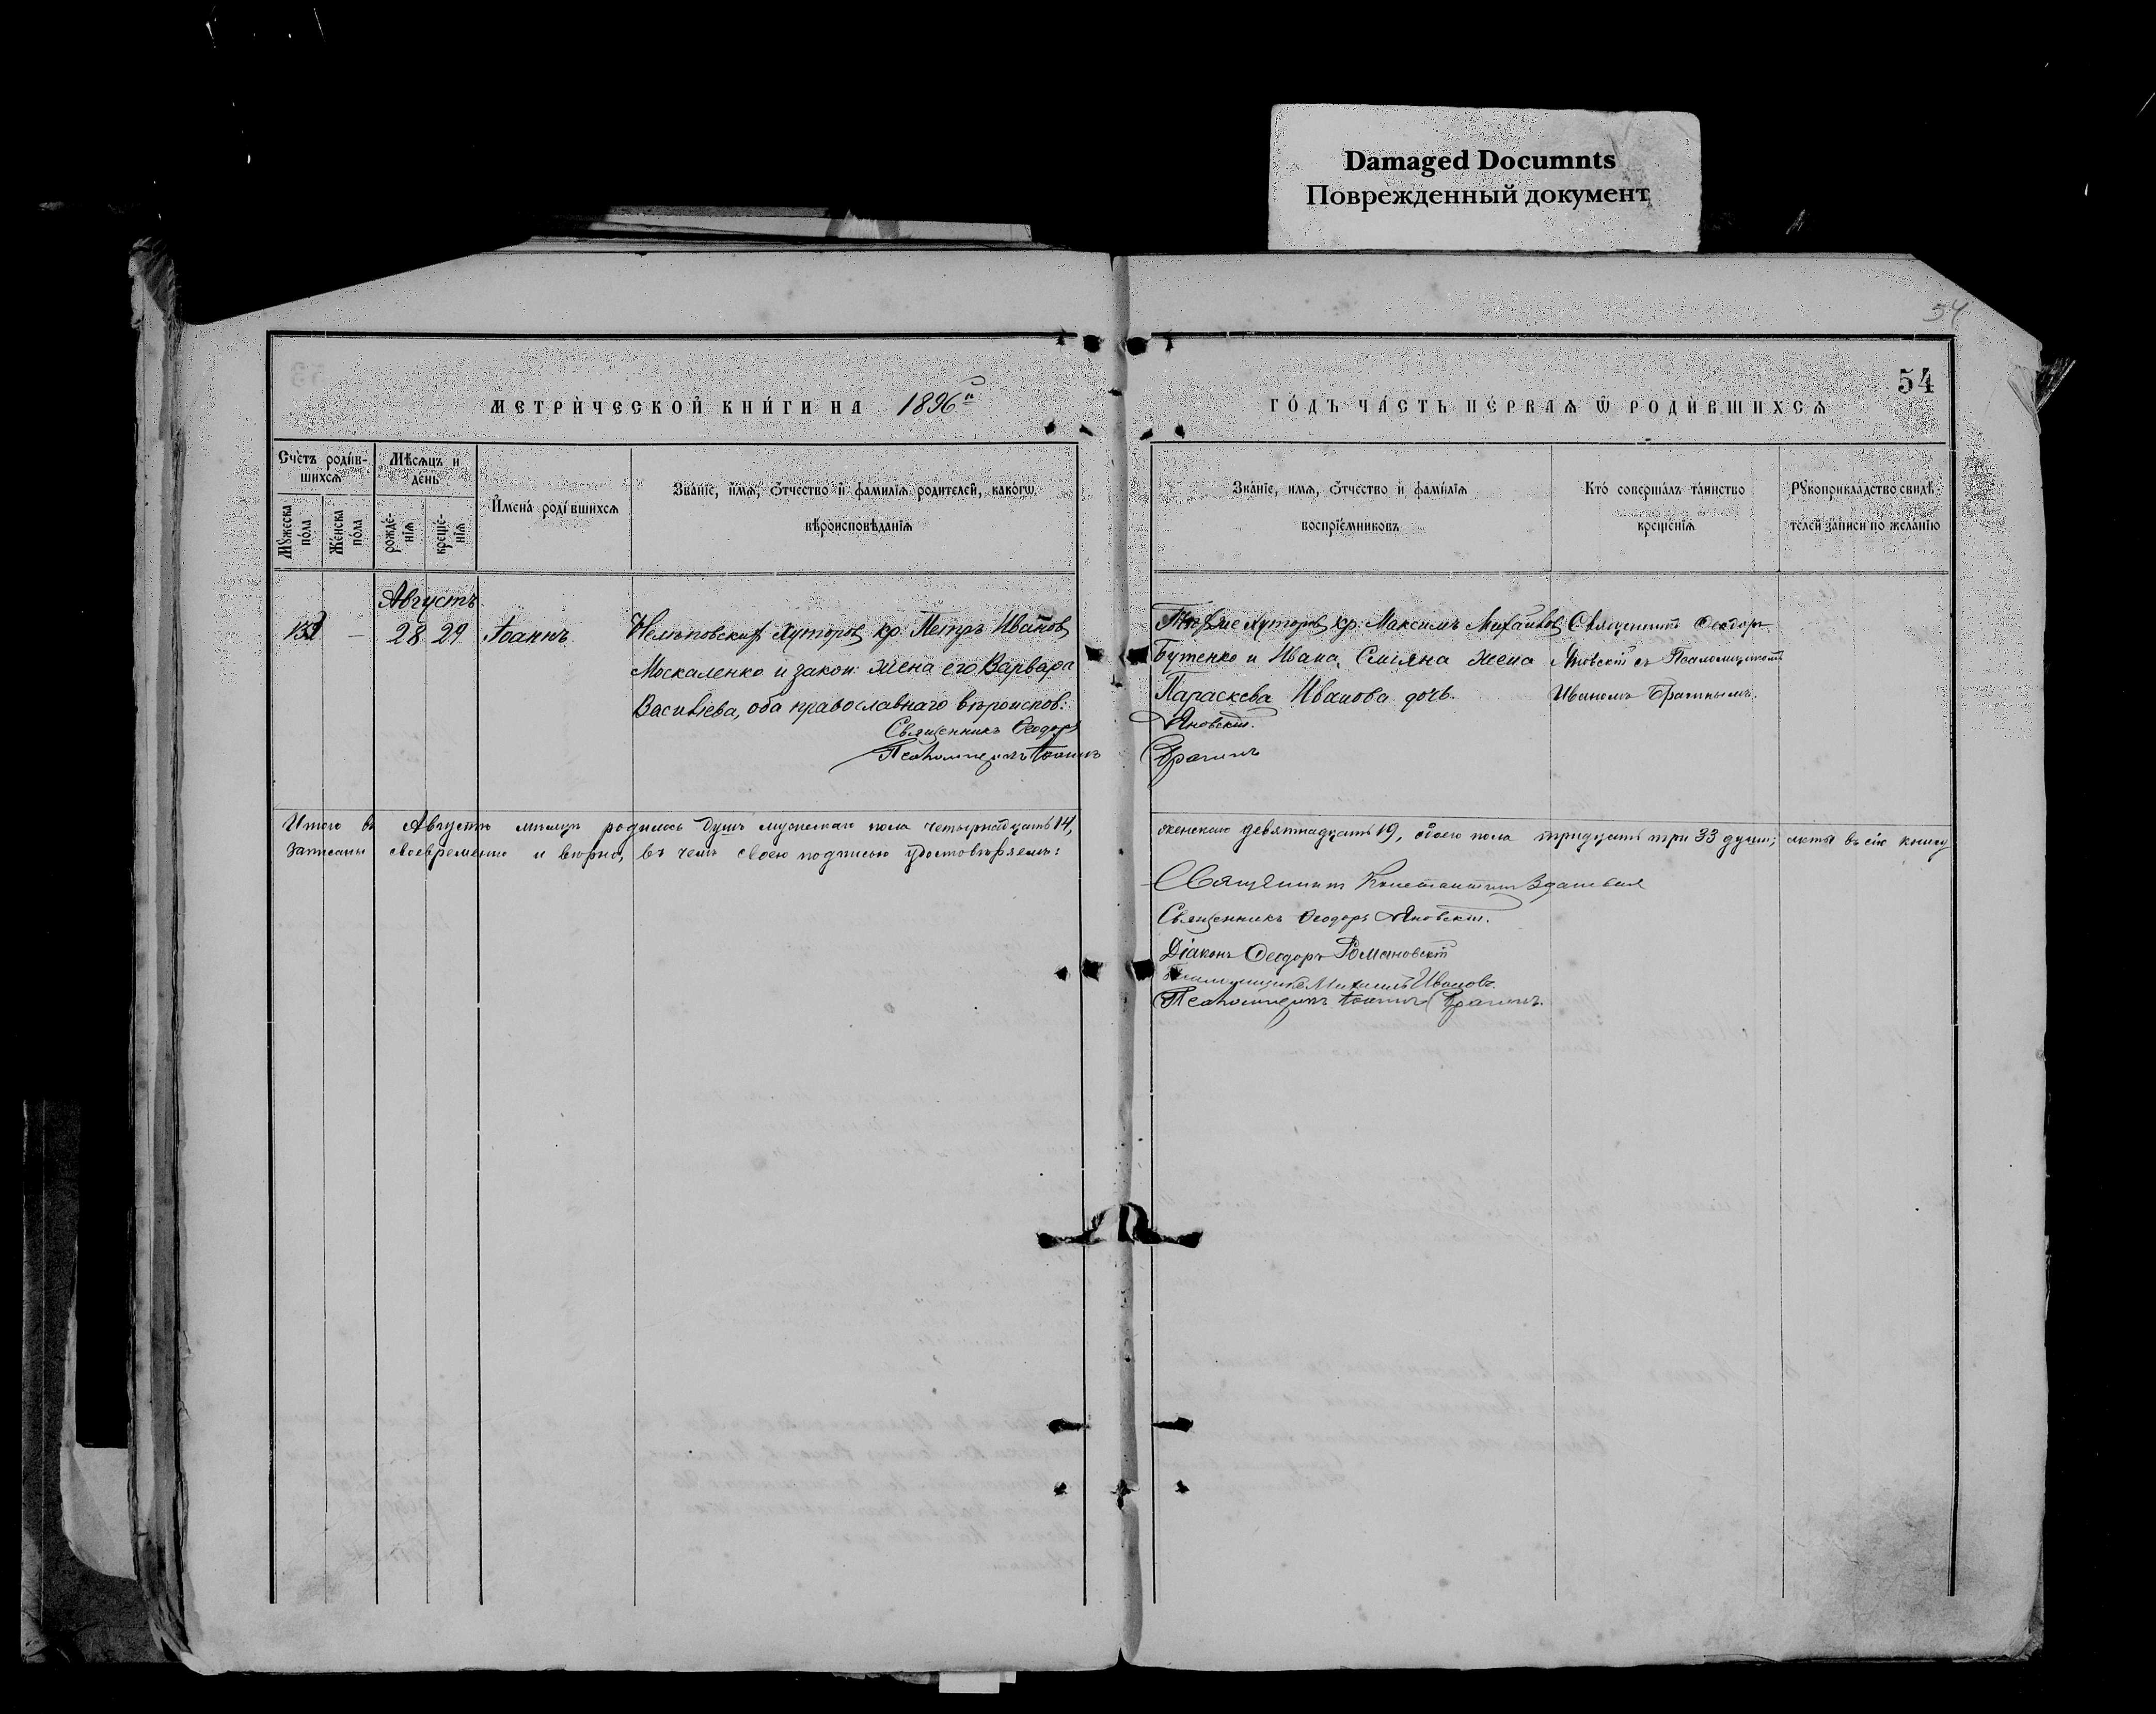 Damaged Documnts
Поврежденный документ
54
54
МЕТРИ́ЧЕСКОЙ КНИ́ГИ НА 1896й
ГО́ДЪ ЧА́СТЬ ПЕ́РВАѦ Ѿ РОДИ́ВШИХСѦ
Сче́тъ роди́в-
шихсѧ
Мѣ́сѧцъ и
де́нь
Мꙋ́жеска
по́ла
Же́нска
по́ла
рожде́-
нїѧ
креще́-
нїѧ
И҆мена̀ роди́вшихсѧ
Зва́нїе, и҆́мѧ, ѻ҆́тчество и҆ фами́лїѧ роди́телей, како́гѡ
вѣроисповѣ́данїѧ
Зва́нїе, имѧ, ѻ҆́тчество и҆ фами́лїѧ
воспрїе́мниковъ
Кто́ соверша́лъ та́инство
креще́нїѧ
Рꙋкоприкла́дство свидѣ́-
телей за́писи по жела́нїю
Августъ
132 — 28 29 Іоаннъ
Хуторовъ кр: Петръ Ивановъ
Москаленко и закон: жена его Варвара
Васильева, оба православнаго вѣроиспов:
Священникъ Ѳеодоръ
Псаломщикъ Іоаннъ
хуторовъ кр: Максимъ Михайловъ
Бутенко и Ивана Смѣяна жена
Параскева Иванова дочь.
Яновскій.
Священникъ Ѳеодоръ
Яновскій съ Псаломщикомъ
Иваномъ
Итого въ Августѣ мѣсяцѣ родилось душъ мужескаго пола четырнадцать 14,
женскаго девятнадцать 19, обоего пола тридцать три 33 души; акты въ сію книгу
записаны своевременно и вѣрно, въ чемъ своею подписью удостовѣряемъ:
Священникъ Константинъ
Священникъ Ѳеодоръ Яновскій.
Діаконъ Ѳеодоръ Романовскій
Псаломщикъ Михаилъ Ивановъ.
Псаломщикъ Іоаннъ